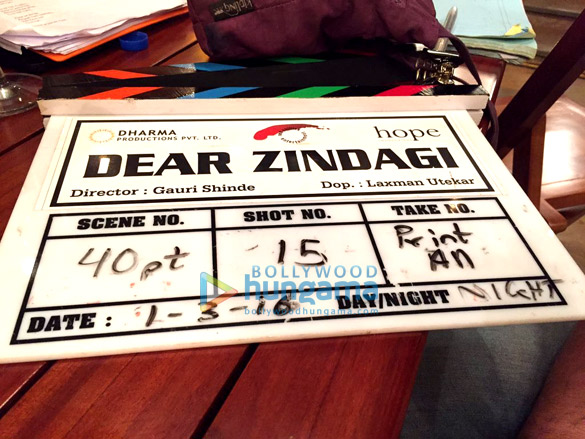 Kipling
DHARMA
PRODUCTIONS PVT. LTD.
hope
DEAR ZINDAGI
Director : Gauri Shinde Dop. : Laxman Utekar
SCENE NO. SHOT NO. TAKE NO.
40pt 15 Print
An
BOLLYWOOD
hungama
bollywoodhungama.com
DATE : 1-3-16 DAY/NIGHT NIGHT